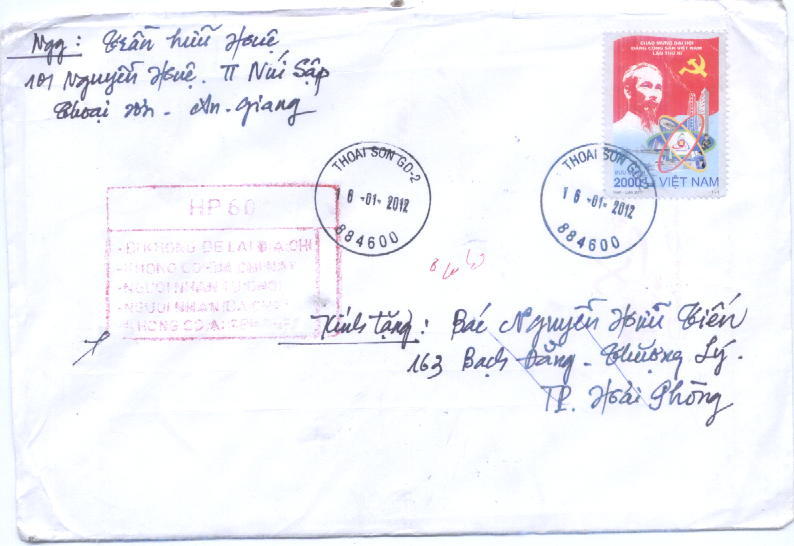 Ngg: Trần Hữu Huệ
101 Nguyễn Huệ. TT Núi Sập
Thoại Sơn - An-Giang
CHÀO MỪNG ĐẠI HỘI
ĐẢNG CỘNG SẢN VIỆT NAM
LẦN THỨ XI
BƯU CHÍNH
2000đ VIỆT NAM
THOAI SON GD-2
16-01-2012
884600
THOAI SON GD-2
16-01-2012
884600
HP 60
-ĐI KHÔNG ĐỂ LẠI ĐỊA CHỈ
-KHÔNG CÓ ĐỊA CHỈ NÀY
-NGƯỜI NHẬN TỪ CHỐI
-NGƯỜI NHẬN ĐÃ CHẾT
Kính tặng: Bác Nguyễn Hữu Tiến
163 Bạch Đằng - Thượng Lý.
TP. Hải Phòng